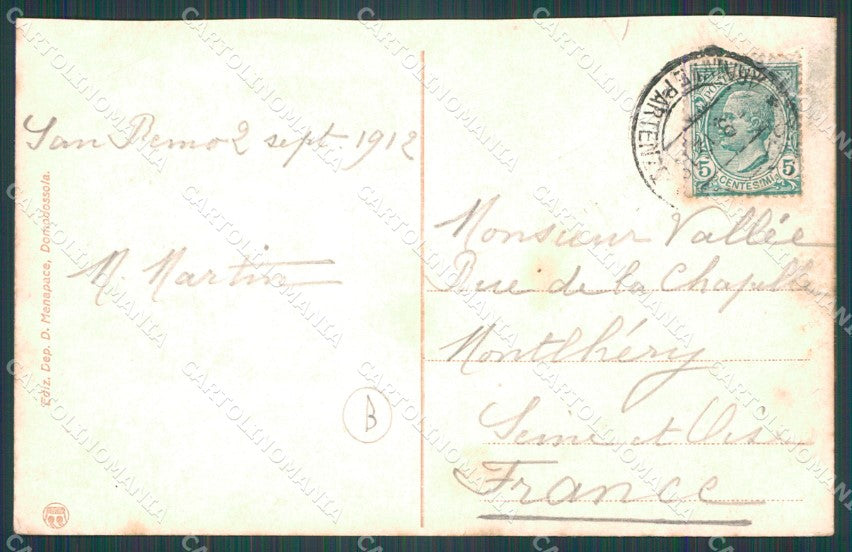 San Remo 2 sept. 1912
M. Martin
Ediz. Dep. D. Menapace, Domodossola.
B
5 CENTESIMI 5
Monsieur Vallée
Rue de la Chapelle
Montlhéry
Seine et Oise
France
CARTOLINOMANIA